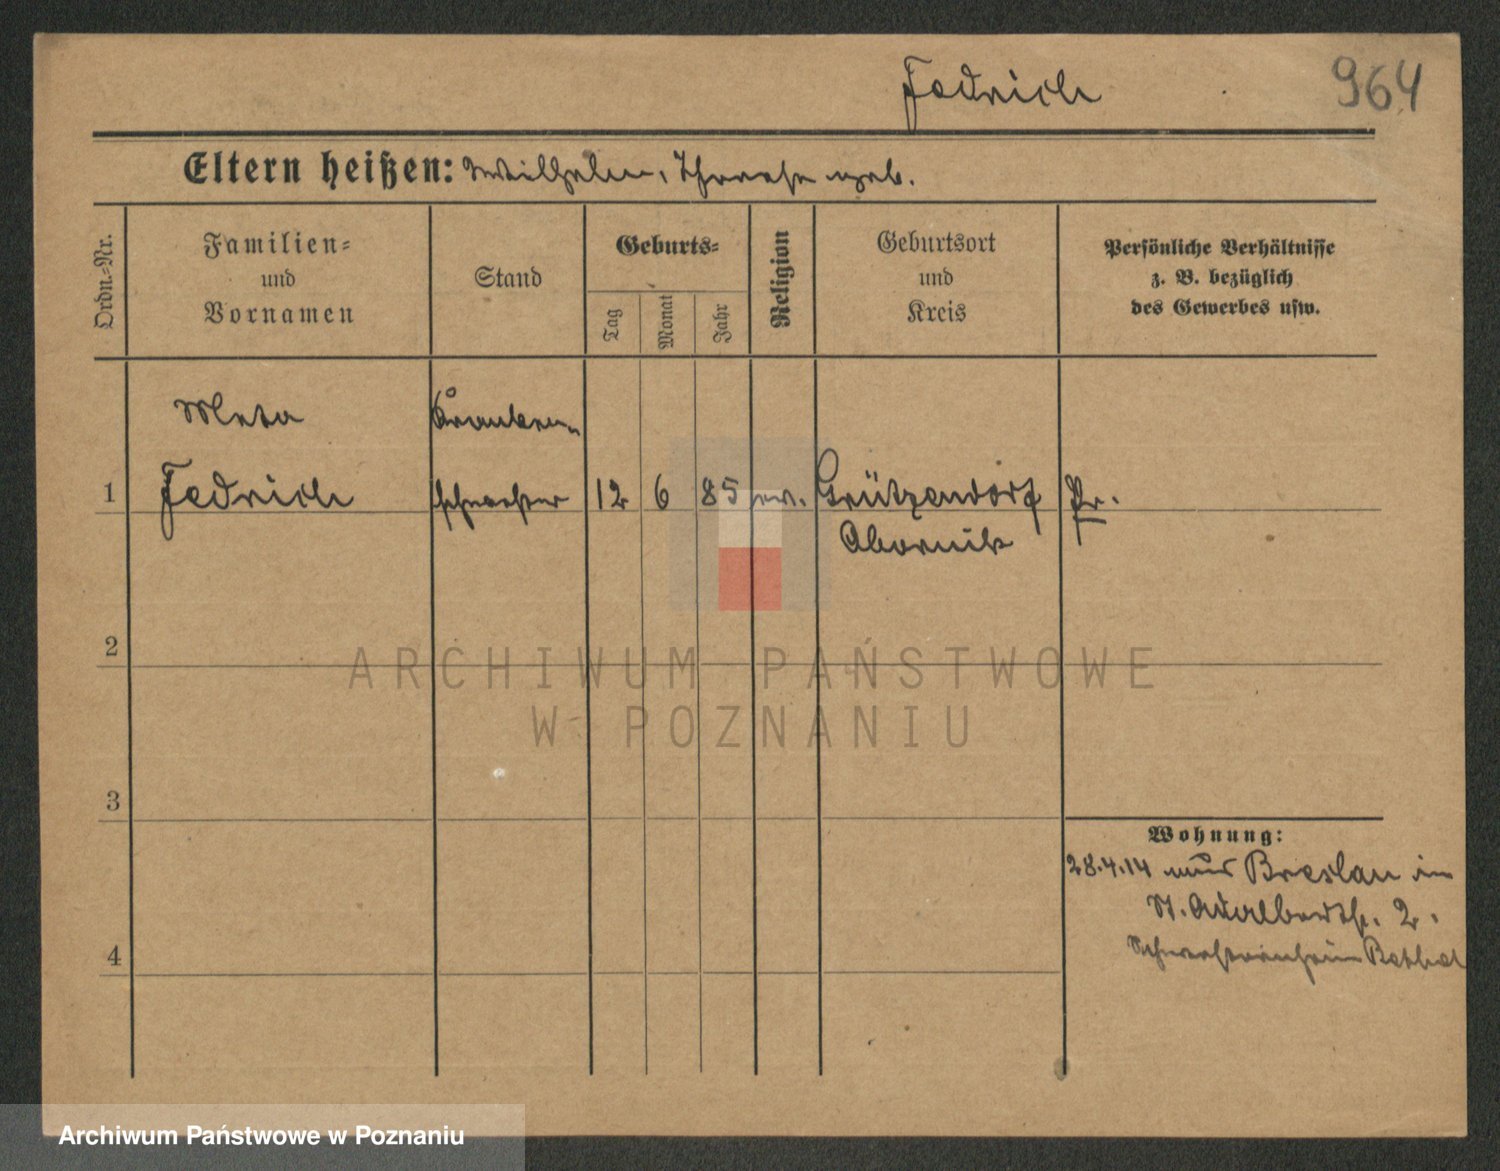 Fedrich 964
Eltern heißen: Wilhelm, Therese geb.
Ordn.-Nr.
Familien-
und
Vornamen
Stand
Geburts-
Tag
Monat
Jahr
Religion
Geburtsort
und
Kreis
Persönliche Verhältnisse
z. B. bezüglich
des Gewerbes usw.
Meta Kranken-
1 Fedrich schwester 12 6 85 ev. Grützendorf Pr.
Obornik
2
3
4
Wohnung:
28.4.14 aus Breslau in
St. Adalbertstr. 2.
Schwesternheim
ARCHIWUM PAŃSTWOWE
W POZNANIU
Archiwum Państwowe w Poznaniu